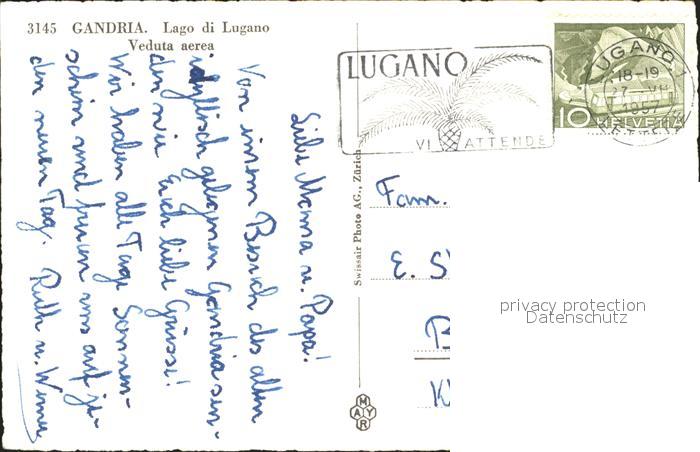 3145 GANDRIA. Lago di Lugano
Veduta aerea
Liebe Mama u. Papa!
Von einem Besuch des alten
idyllisch gelegenen Gandria sen-
den wir Euch liebe Grüsse!
Wir haben alle Tage Sonnen-
schein und freuen uns auf je-
den neuen Tag. Ruth u. Werner
Swissair Photo AG., Zürich
MAYR
LUGANO
VI ATTENDE
LUGANO 1
18-19
27
1957
10 HELVETIA
Fam.
E. S
B
K
privacy protection
Datenschutz